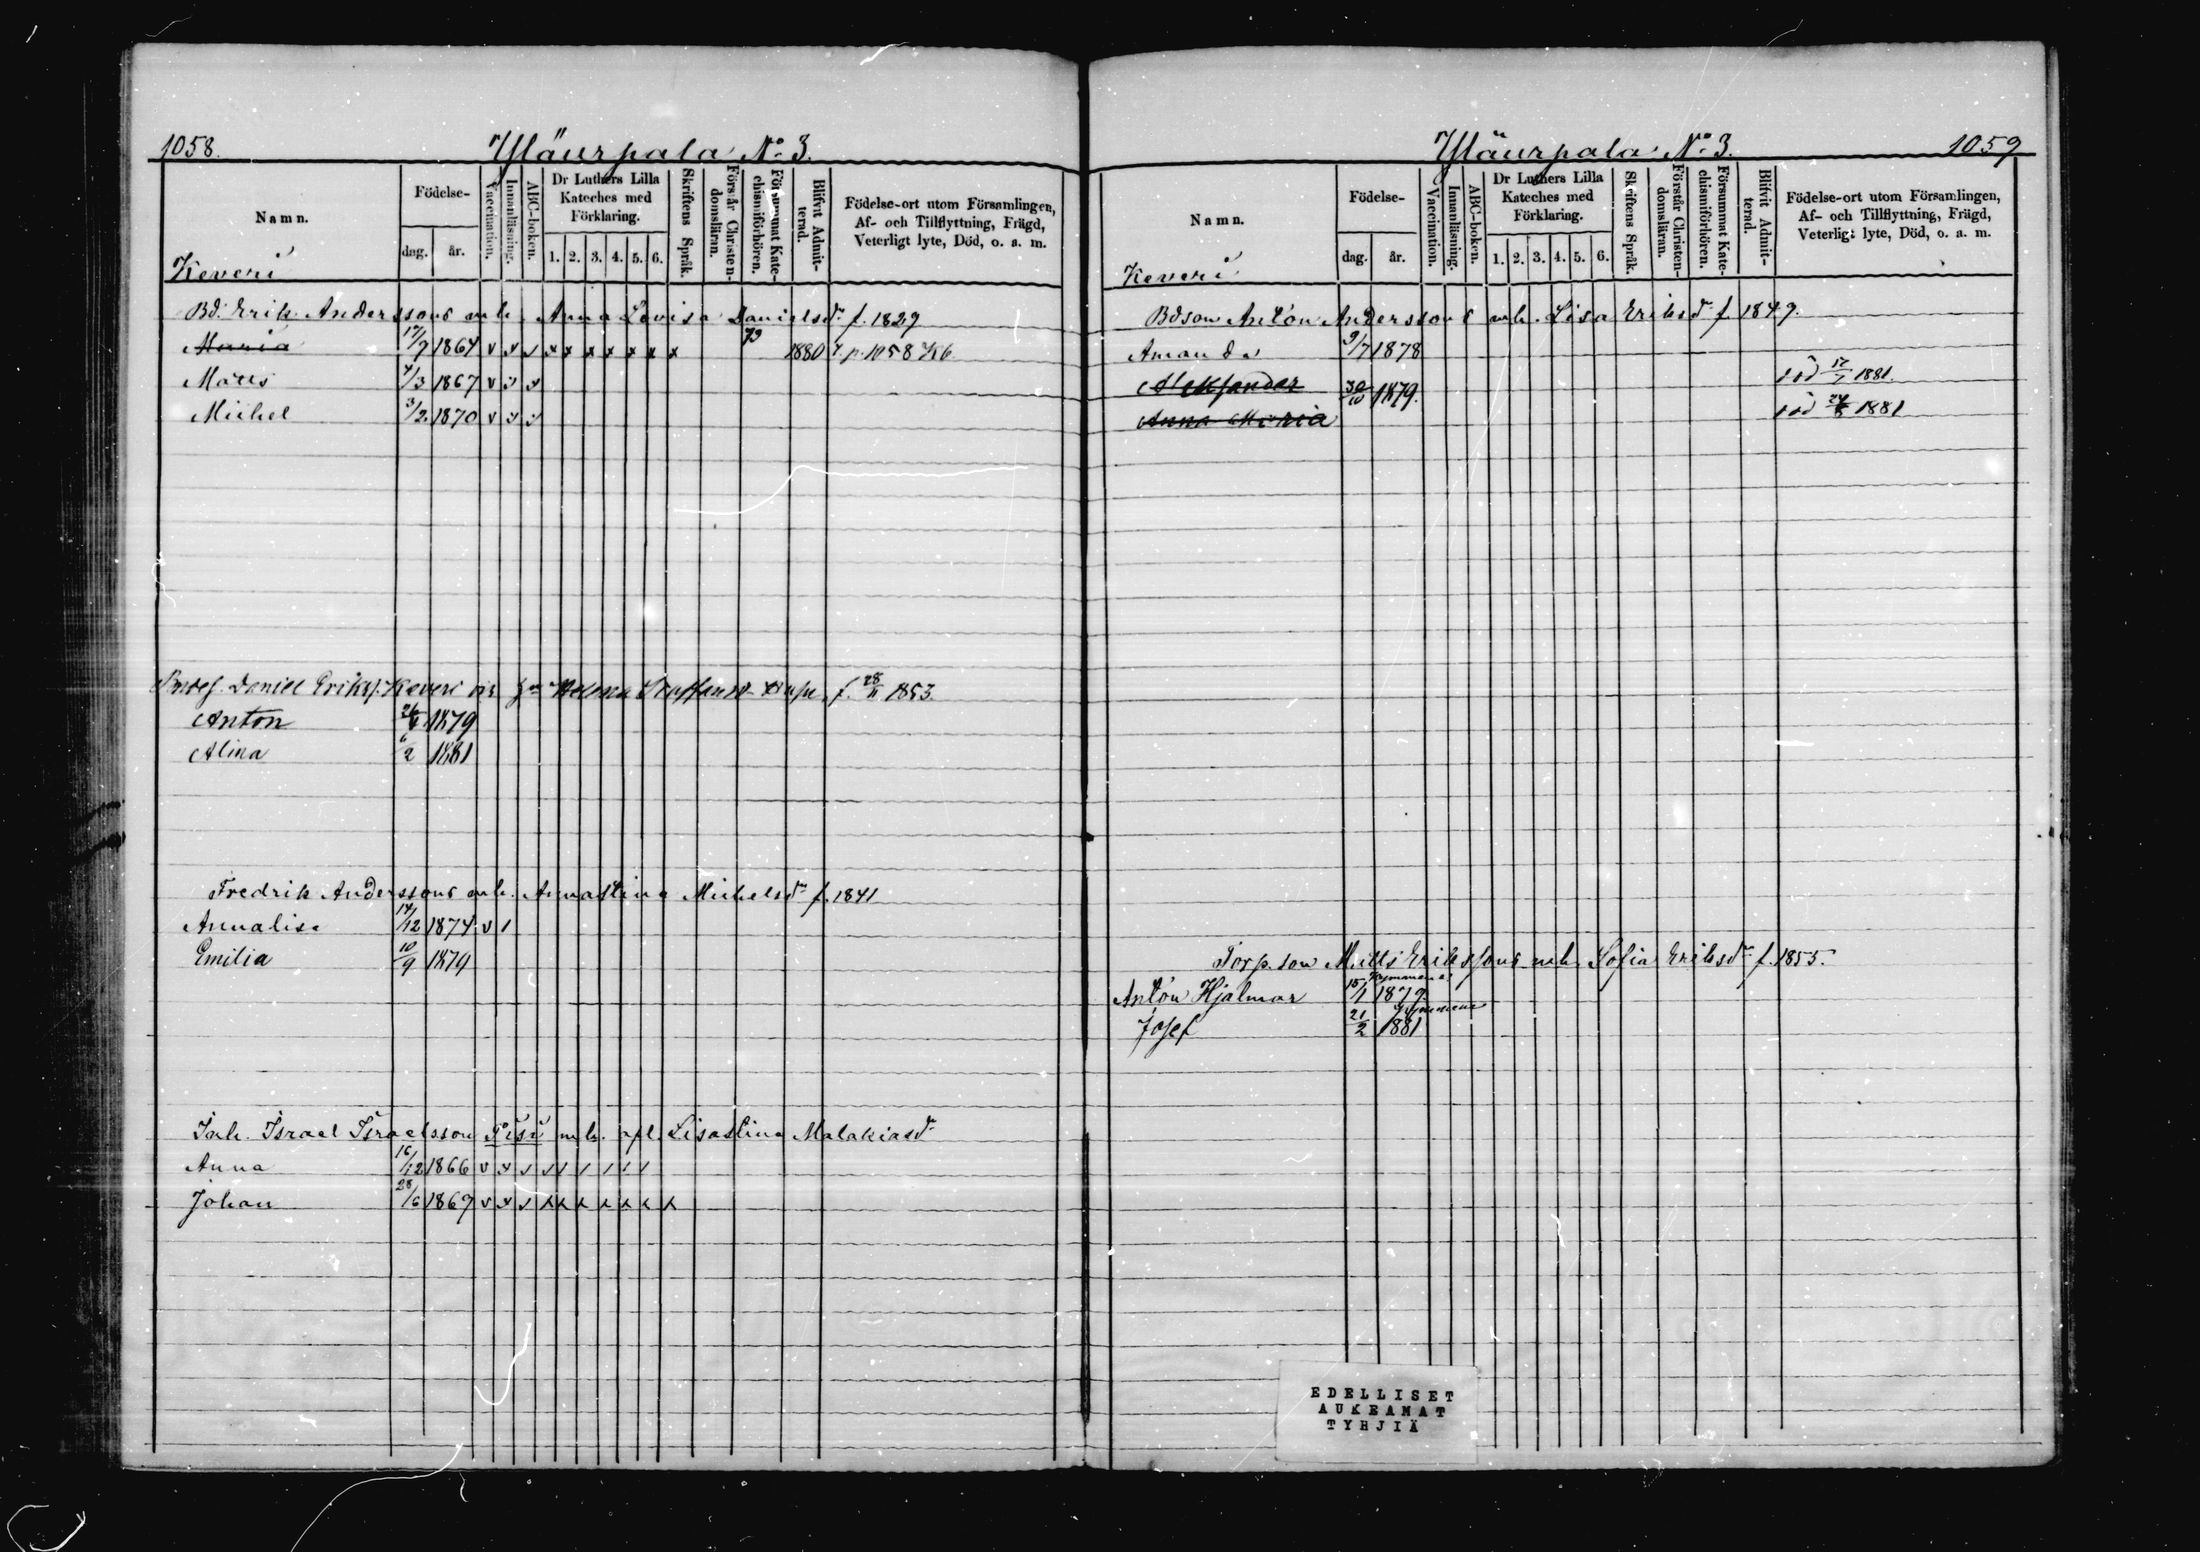 1058.
Yläurpala No 3.
Namn.
Födelse-
dag.
år.
Vaccination.
Innanläsning.
ABC-boken.
Dr Luthers Lilla
Kateches med
Förklaring.
1. 2. 3. 4. 5. 6.
Skriftens Språk.
Förstår Christen-
domsläran.
Försummat Kate-
chismiförhören.
Blifvit Admit-
terad.
Födelse-ort utom Församlingen,
Af- och Tillflyttning, Frägd,
Veterligt lyte, Död, o. a. m.
Keveri
Bd. Erik Anderssons mh. Anna Lovisa Danielsdr f. 1829
Maria 17/9 1864 v x x x x x x x x x 73 1880 p. 1058
Matts 4/3 1867 v
Michel 3/2 1870 v
Daniel Erikss. Keveri Helena f. 28/11 1853.
Anton 1879
Alina 6/2 1881
Fredrik Anderssons mh. Annastina Michelsdr f. 1841
Annalisa 14/12 1874 v /
Emilia 10/9 1879
Inh. Israel Israelsson mh. Lisastina Malakiasdr
Anna 16/12 1866 v
Johan 28/6 1869 v
Yläurpala No 3.
1059
Namn.
Födelse-
dag.
år.
Vaccination.
Innanläsning.
ABC-boken.
Dr Luthers Lilla
Kateches med
Förklaring.
1. 2. 3. 4. 5. 6.
Skriftens Språk.
Förstår Christen-
domsläran.
Försummat Kate-
chismiförhören.
Blifvit Admit-
terad.
Födelse-ort utom Församlingen,
Af- och Tillflyttning, Frägd,
Veterligt lyte, Död, o. a. m.
Keveri
Bdson Anton Anderssons mh. Lisa Eriksdr f. 1849.
Amanda 9/7 1878
Aleksander 30/10 1879. död 1881.
Anna Maria död 1881
Torp. son Matts Erikssons mh. Sofia Eriksdr f. 1855.
Anton Hjalmar 15/1 1879.
Josef 21/2 1881
EDELLISET
AUKEAMAT
TYHJIÄ